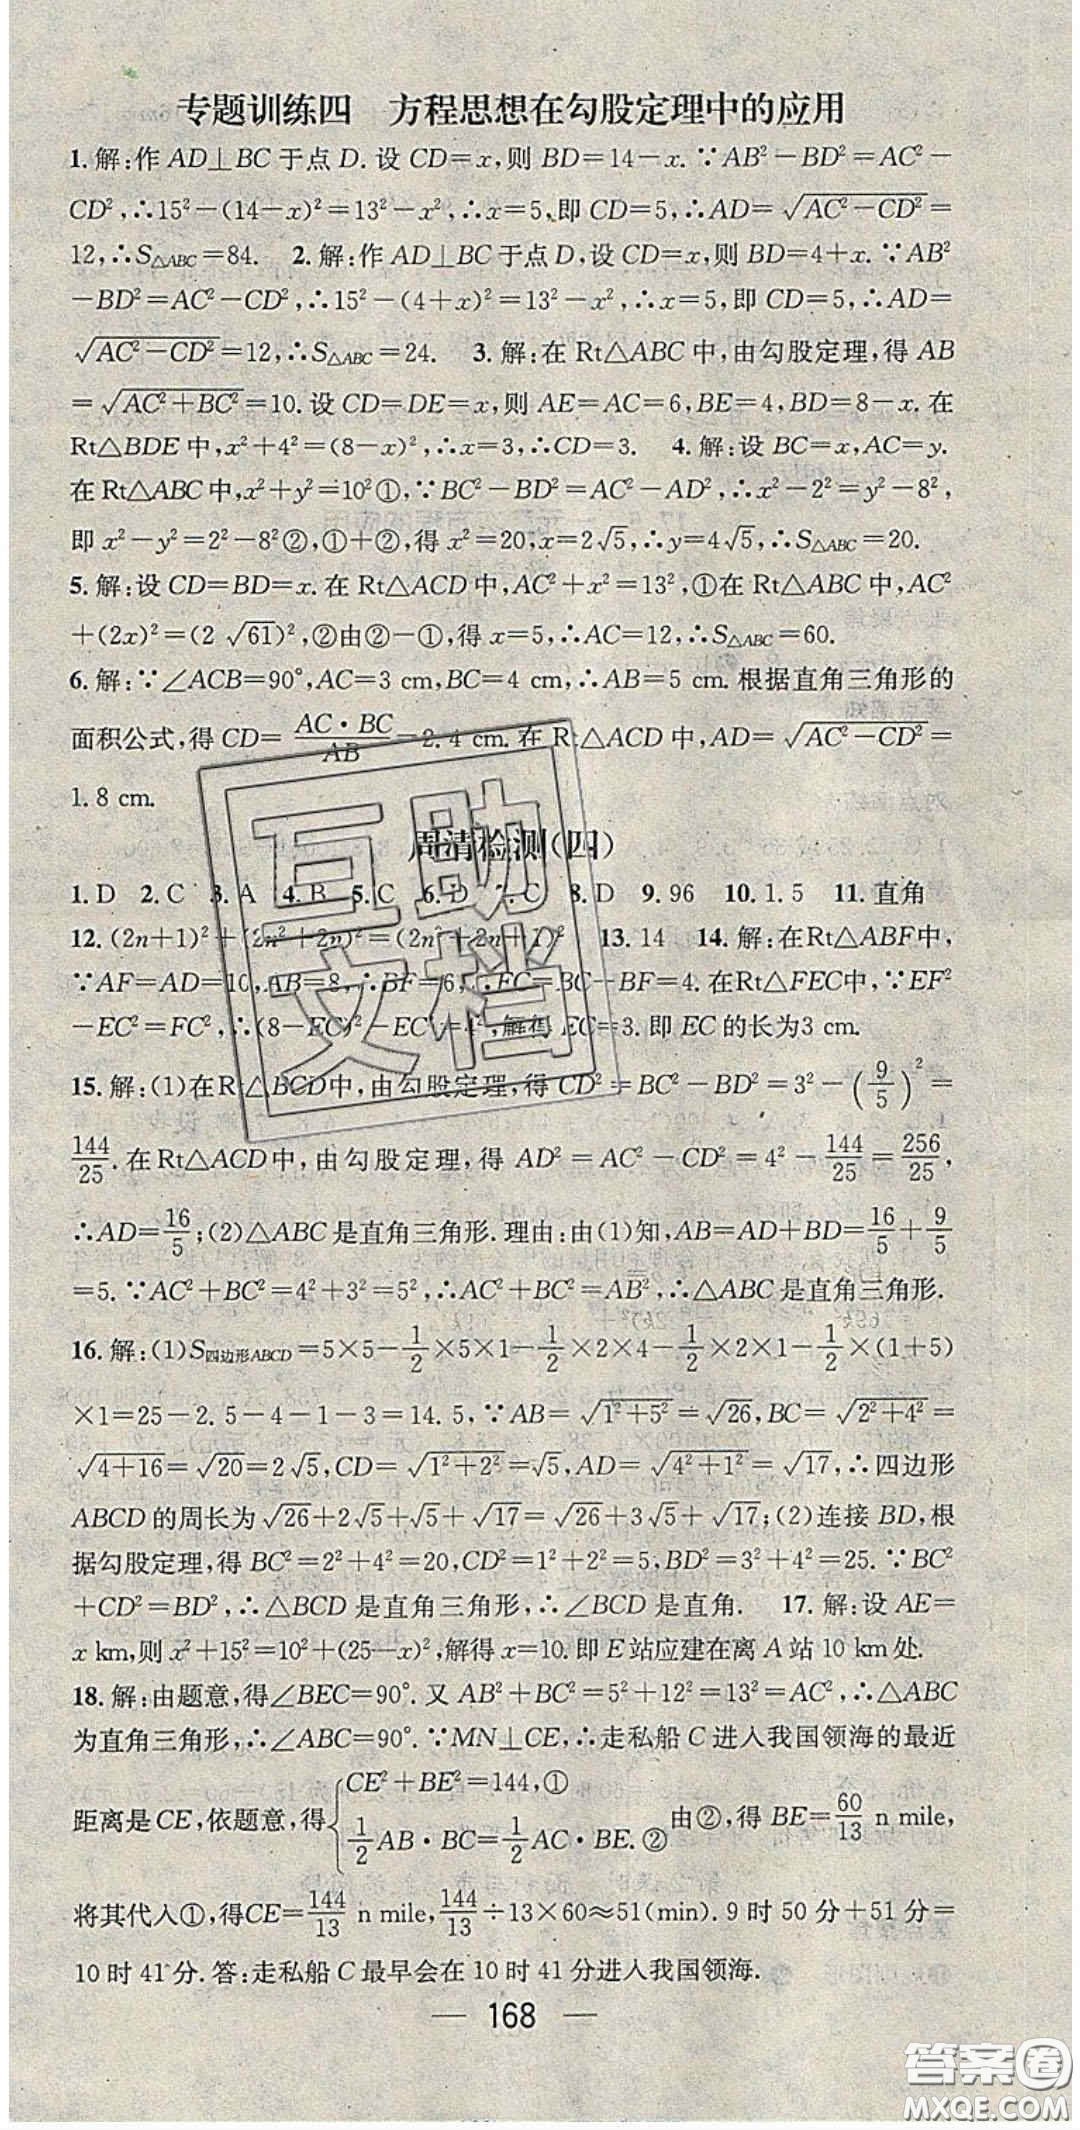 专题训练四　方程思想在勾股定理中的应用
1.解:作AD⊥BC于点D.设CD=x,则BD=14-x.∵AB²-BD²=AC²-
CD²,∴15²-(14-x)²=13²-x²,∴x=5,即CD=5,∴AD=√(AC²-CD²)=
12,∴S△ABC=84.　2.解:作AD⊥BC于点D,设CD=x,则BD=4+x.∵AB²
-BD²=AC²-CD²,∴15²-(4+x)²=13²-x²,∴x=5,即CD=5,∴AD=
√(AC²-CD²)=12,∴S△ABC=24.　3.解:在Rt△ABC中,由勾股定理,得AB
=√(AC²+BC²)=10.设CD=DE=x,则AE=AC=6,BE=4,BD=8-x.在
Rt△BDE中,x²+4²=(8-x)²,∴x=3,∴CD=3.　4.解:设BC=x,AC=y.
在Rt△ABC中,x²+y²=10²①,∵BC²-BD²=AC²-AD²,∴x²-2²=y²-8²,
即x²-y²=2²-8²②,①+②,得x²=20,x=2√5,∴y=4√5,∴S△ABC=20.
5.解:设CD=BD=x.在Rt△ACD中,AC²+x²=13²,①在Rt△ABC中,AC²
+(2x)²=(2√61)²,②由②-①,得x=5,∴AC=12,∴S△ABC=60.
6.解:∵∠ACB=90°,AC=3 cm,BC=4 cm,∴AB=5 cm.根据直角三角形的
面积公式,得CD=AC·BC/AB=2.4 cm.在Rt△ACD中,AD=√(AC²-CD²)=
1.8 cm.
周清检测(四)
1.D　2.C　3.A　4.B　5.C　6.D　7.C　8.D　9.96　10.1.5　11.直角
12.(2n+1)²+(2n²+2n)²=(2n²+2n+1)²　13.14　14.解:在Rt△ABF中,
∵AF=AD=10,AB=8,∴BF=6,∵FC=BC-BF=4.在Rt△FEC中,∵EF²
-EC²=FC²,∴(8-EC)²-EC²=4²,解得EC=3.即EC的长为3 cm.
15.解:(1)在Rt△BCD中,由勾股定理,得CD²=BC²-BD²=3²-(9/5)²=
144/25.在Rt△ACD中,由勾股定理,得AD²=AC²-CD²=4²-144/25=256/25,
∴AD=16/5;(2)△ABC是直角三角形.理由:由(1)知,AB=AD+BD=16/5+9/5
=5.∵AC²+BC²=4²+3²=5²,∴AC²+BC²=AB²,∴△ABC是直角三角形.
16.解:(1)S四边形ABCD=5×5-1/2×5×1-1/2×2×4-1/2×2×1-1/2×(1+5)
×1=25-2.5-4-1-3=14.5,∵AB=√(1²+5²)=√26,BC=√(2²+4²)=
√(4+16)=√20=2√5,CD=√(1²+2²)=√5,AD=√(4²+1²)=√17,∴四边形
ABCD的周长为√26+2√5+√5+√17=√26+3√5+√17;(2)连接BD,根
据勾股定理,得BC²=2²+4²=20,CD²=1²+2²=5,BD²=3²+4²=25.∵BC²
+CD²=BD²,∴△BCD是直角三角形,∴∠BCD是直角.　17.解:设AE=
x km,则x²+15²=10²+(25-x)²,解得x=10.即E站应建在离A站10 km处.
18.解:由题意,得∠BEC=90°.又AB²+BC²=5²+12²=13²=AC²,∴△ABC
为直角三角形,∴∠ABC=90°.∵MN⊥CE,∴走私船C进入我国领海的最近
距离是CE,依题意,得{CE²+BE²=144,① 1/2AB·BC=1/2AC·BE.② 由②,得BE=60/13 n mile,
将其代入①,得CE=144/13 n mile,144/13÷13×60≈51(min).9时50分+51分=
10时41分.答:走私船C最早会在10时41分进入我国领海.
— 168 —
互助
文档
答案圈
MXQE.COM